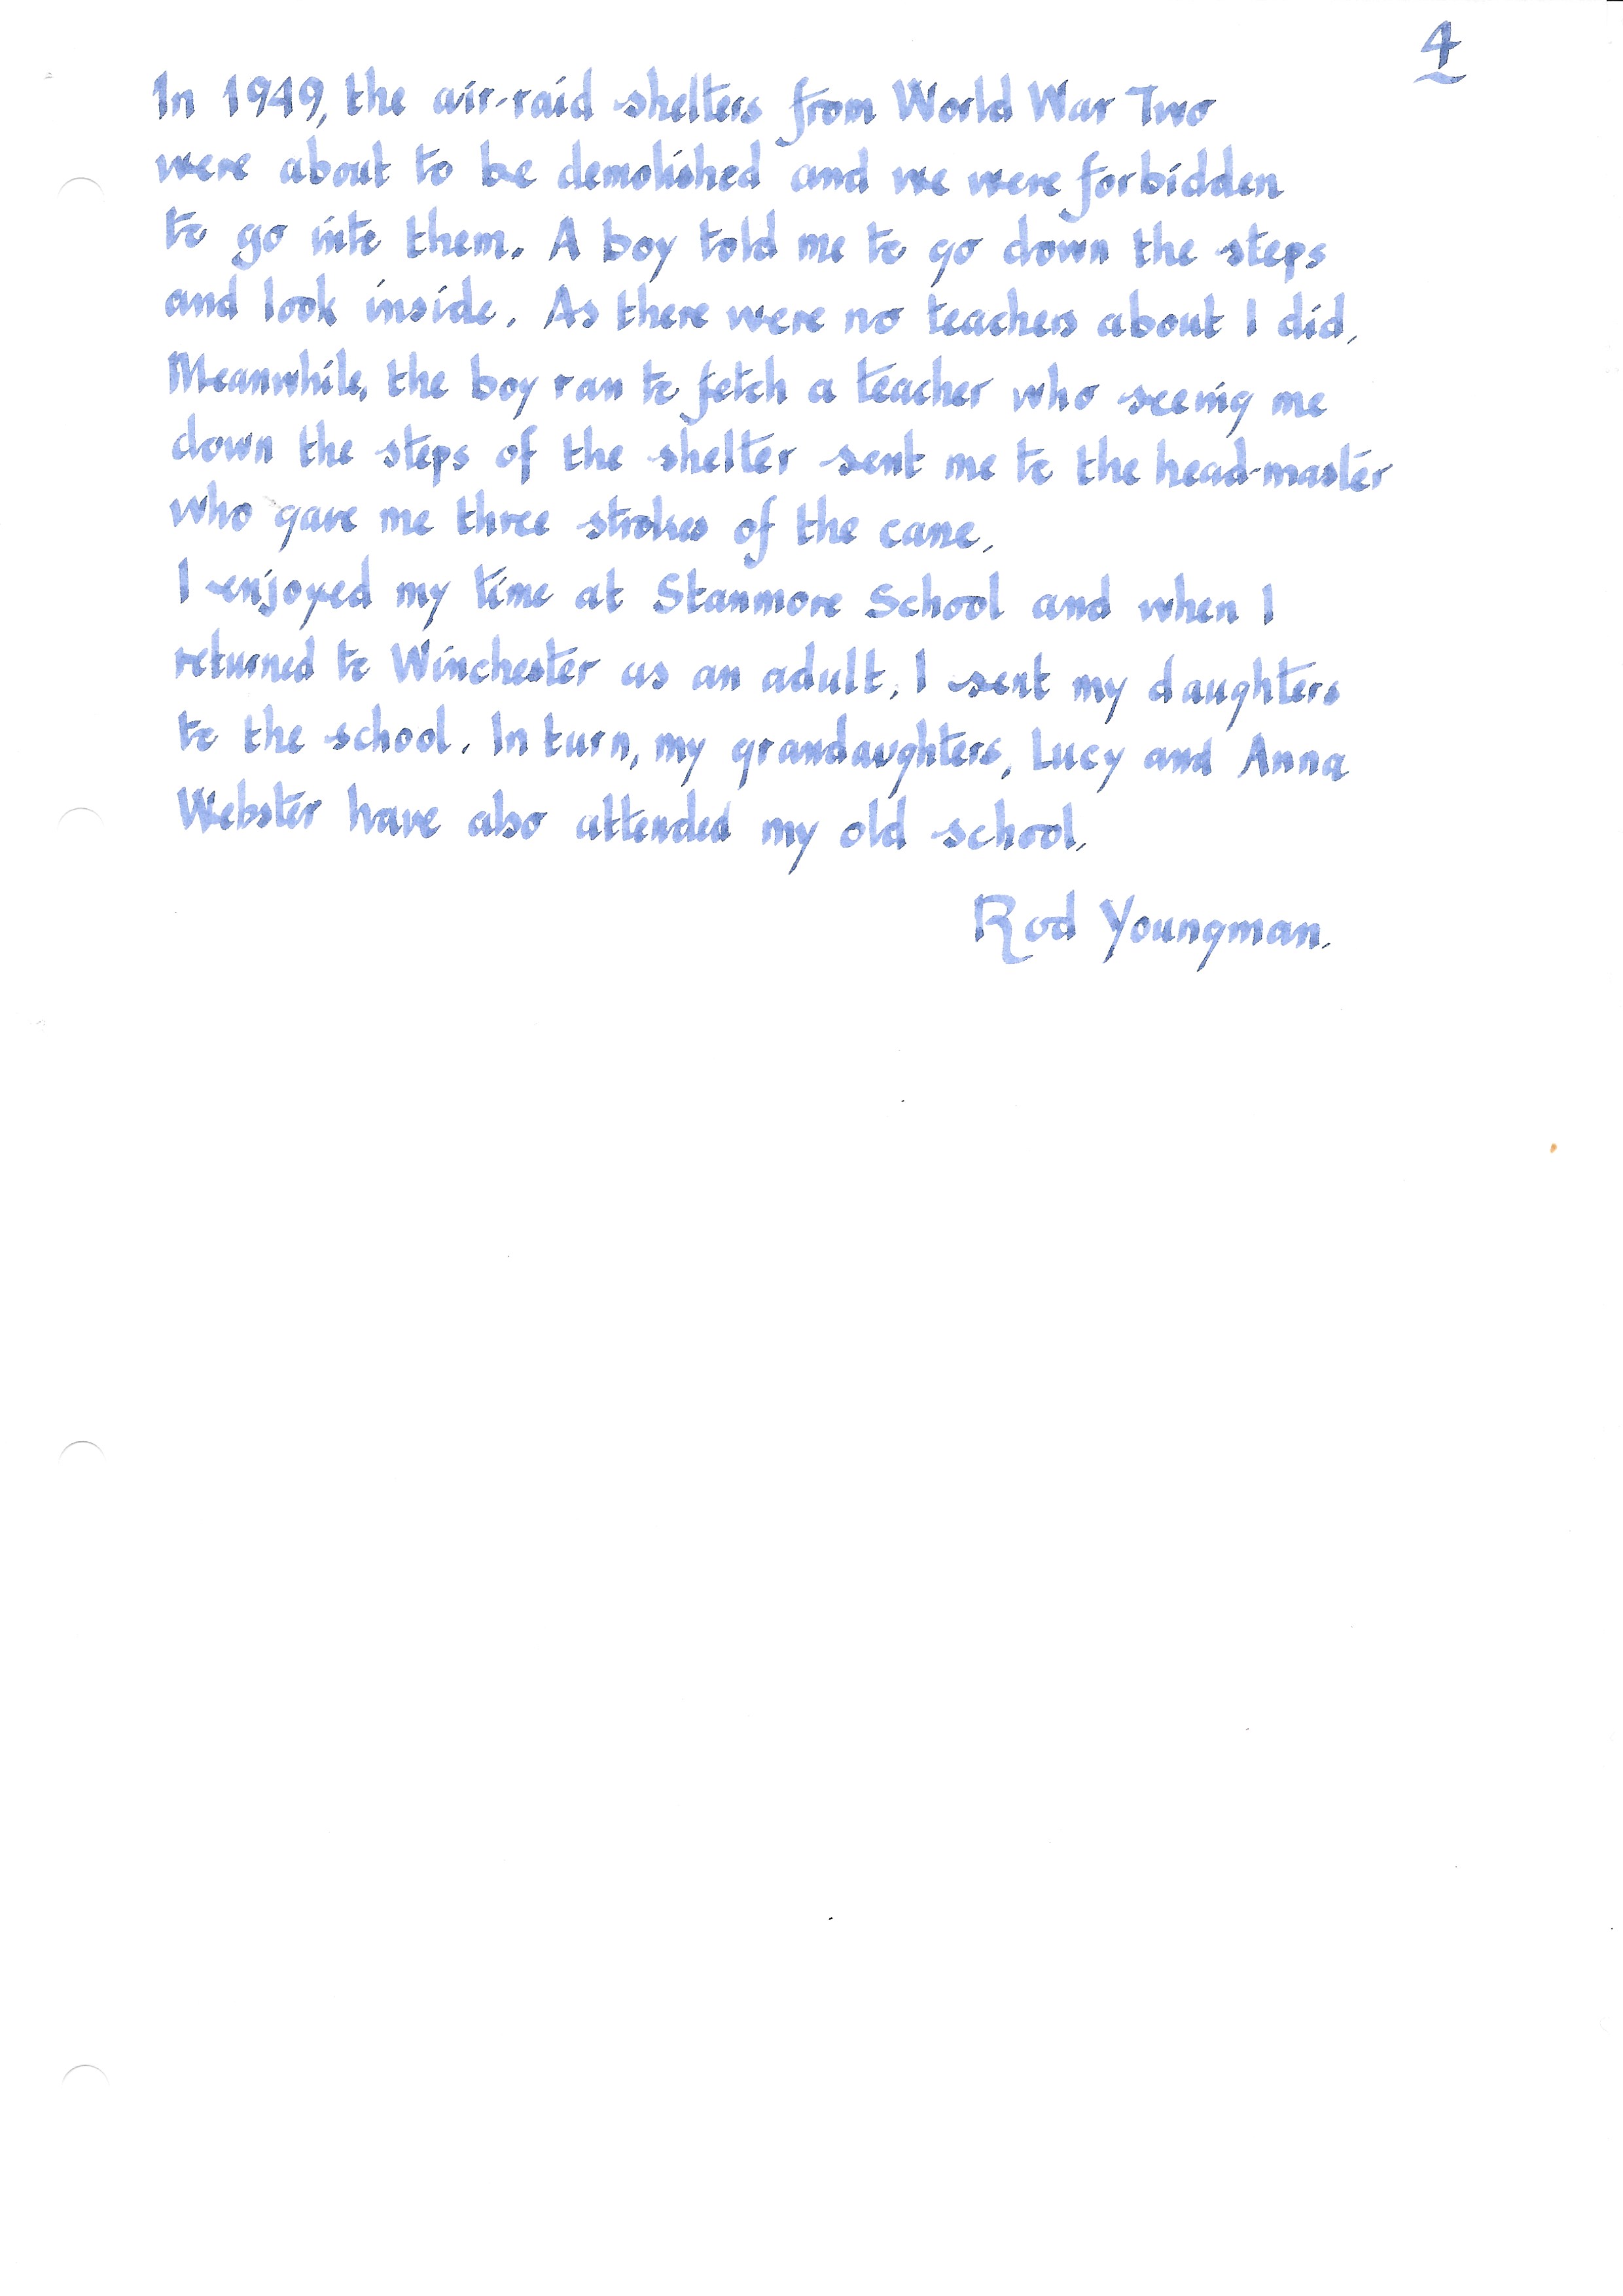 4
In 1949, the air-raid shelters from World War Two
were about to be demolished and we were forbidden
to go into them. A boy told me to go down the steps
and look inside. As there were no teachers about I did.
Meanwhile, the boy ran to fetch a teacher who seeing me
down the steps of the shelter sent me to the head-master
who gave me three strokes of the cane.
I enjoyed my time at Stanmore School and when I
returned to Winchester as an adult, I sent my daughters
to the school. In turn, my grandaughters, Lucy and Anna
Webster have also attended my old school.
Rod Youngman.